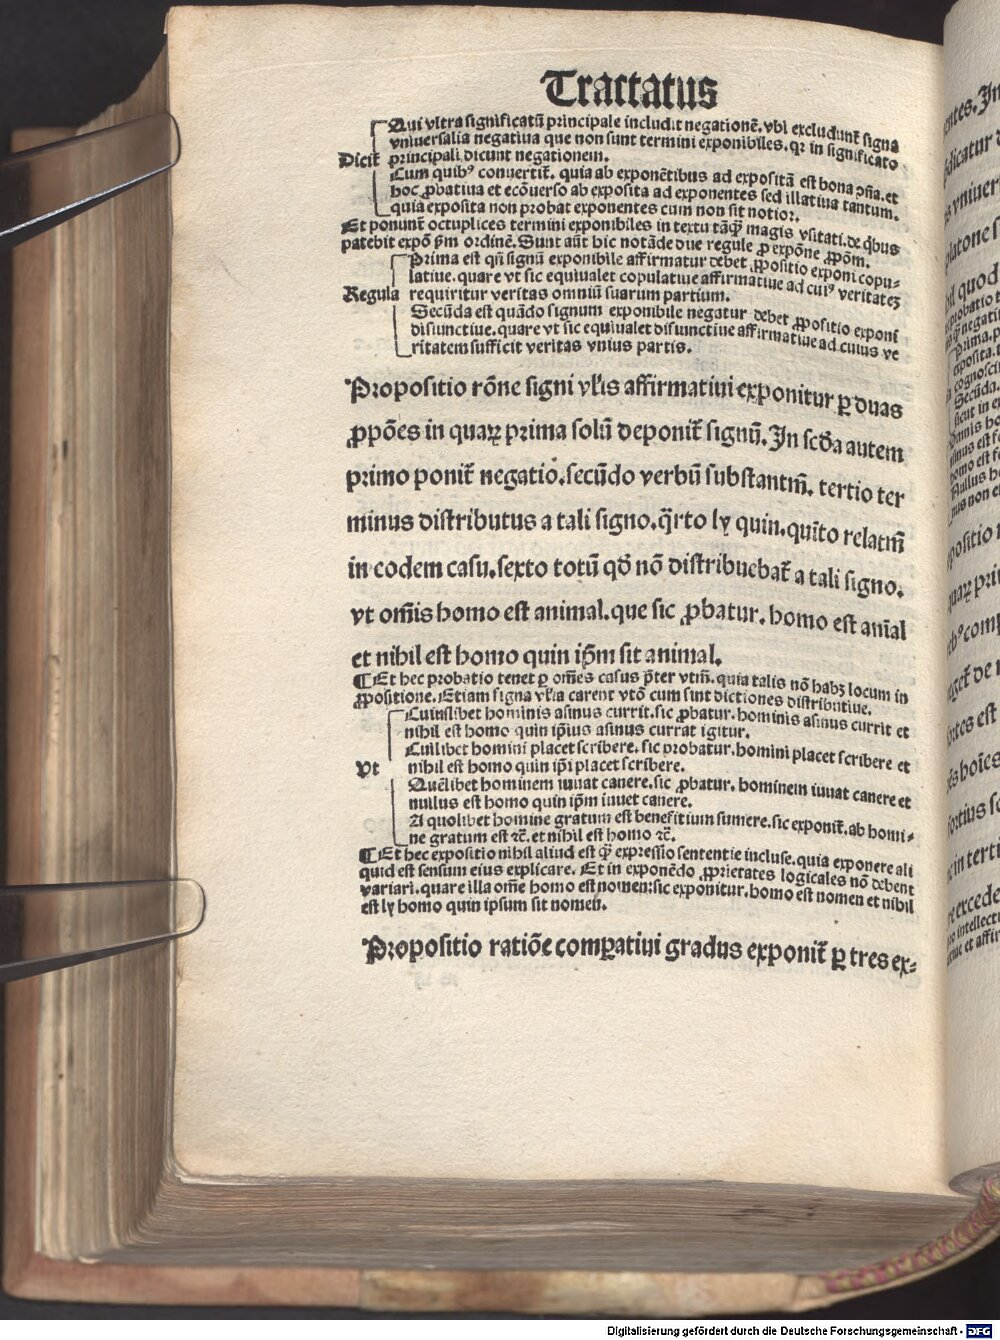 Tractatus
Qui vltra significatū principale includit negationē. vbi excludunt᷑ signa
vniuersalia negatiua que non sunt termini exponibiles. qꝛ in significato
Dicit᷑ principali dicunt negationem.
Cum quibꝰ conuertit᷑. quia ab exponētibus ad expositā est bona ↄña. et
hoc ꝓbatiua et ecōuerso ab exposita ad exponentes sed illatiua tantum.
quia exposita non probat exponentes cum non sit notior.
Et ponunt᷑ octuplices termini exponibiles in textu tāqꝫ magis vsitati. de q̄bus
patebit expō ẜm ordinē. Sunt aūt hic notāde due regule ꝓ expōne ꝓpōm.
Prima est qñ signū exponibile affirmatur debet ꝓpositio exponi copu-
latiue. quare vt sic equiualet copulatiue affirmatiue ad cuiꝰ veritatez
Regula requiritur veritas omniū suarum partium.
Secūda est quādo signum exponibile negatur debet ꝓpositio exponi
disiunctiue. quare vt sic equiualet disiunctiue affirmatiue ad cuius ve
ritatem sufficit veritas vnius partis.
Propositio rōne signi vlis affirmatiui exponitur ꝑ duas
ꝓpōes in quaꝝ prima solū deponit᷑ signū. In scd̄a autem
primo ponit᷑ negatio. secūdo verbū substantm̄. tertio ter
minus distributus a tali signo. q̄rto ly quin. quīto relatm̄
in eodem casu. sexto totū qd̄ nō distribuebat᷑ a tali signo.
vt om̄is homo est animal. que sic ꝓbatur. homo est aīal
et nihil est homo quin ip̄m sit animal.
¶ Et hec probatio tenet ꝑ om̄es casus p̄ter vtm̄. quia talis nō habꝫ locum in
ꝓpositione. Etiam signa vlia carent vtō cum sint dictiones distributiue.
Cuiuslibet hominis asinus currit. sic ꝓbatur. hominis asinus currit et
nihil est homo quin ip̄ius asinus currat igitur.
Cuilibet homini placet scribere. sic probatur. homini placet scribere et
Vt nihil est homo quin ip̄i placet scribere.
Quēlibet hominem iuuat canere. sic ꝓbatur. hominem iuuat canere et
nullus est homo quin ip̄m iuuet canere.
A quolibet homine gratum est beneficium sumere. sic exponit᷑. ab homi-
ne gratum est ⁊c̄. et nihil est homo ⁊c̄.
¶ Et hec expositio nihil aliud est qꝫ expressio sententie incluse. quia exponere ali
quid est sensum eius explicare. Et in exponēdo ꝓprietates logicales nō debent
variari. quare illa om̄e homo est nomen: sic exponitur. homo est nomen et nihil
est ly homo quin ipsum sit nomen.
Propositio ratiōe comꝑatiui gradus exponit᷑ ꝑ tres ex-
Digitalisierung gefördert durch die Deutsche Forschungsgemeinschaft - DFG